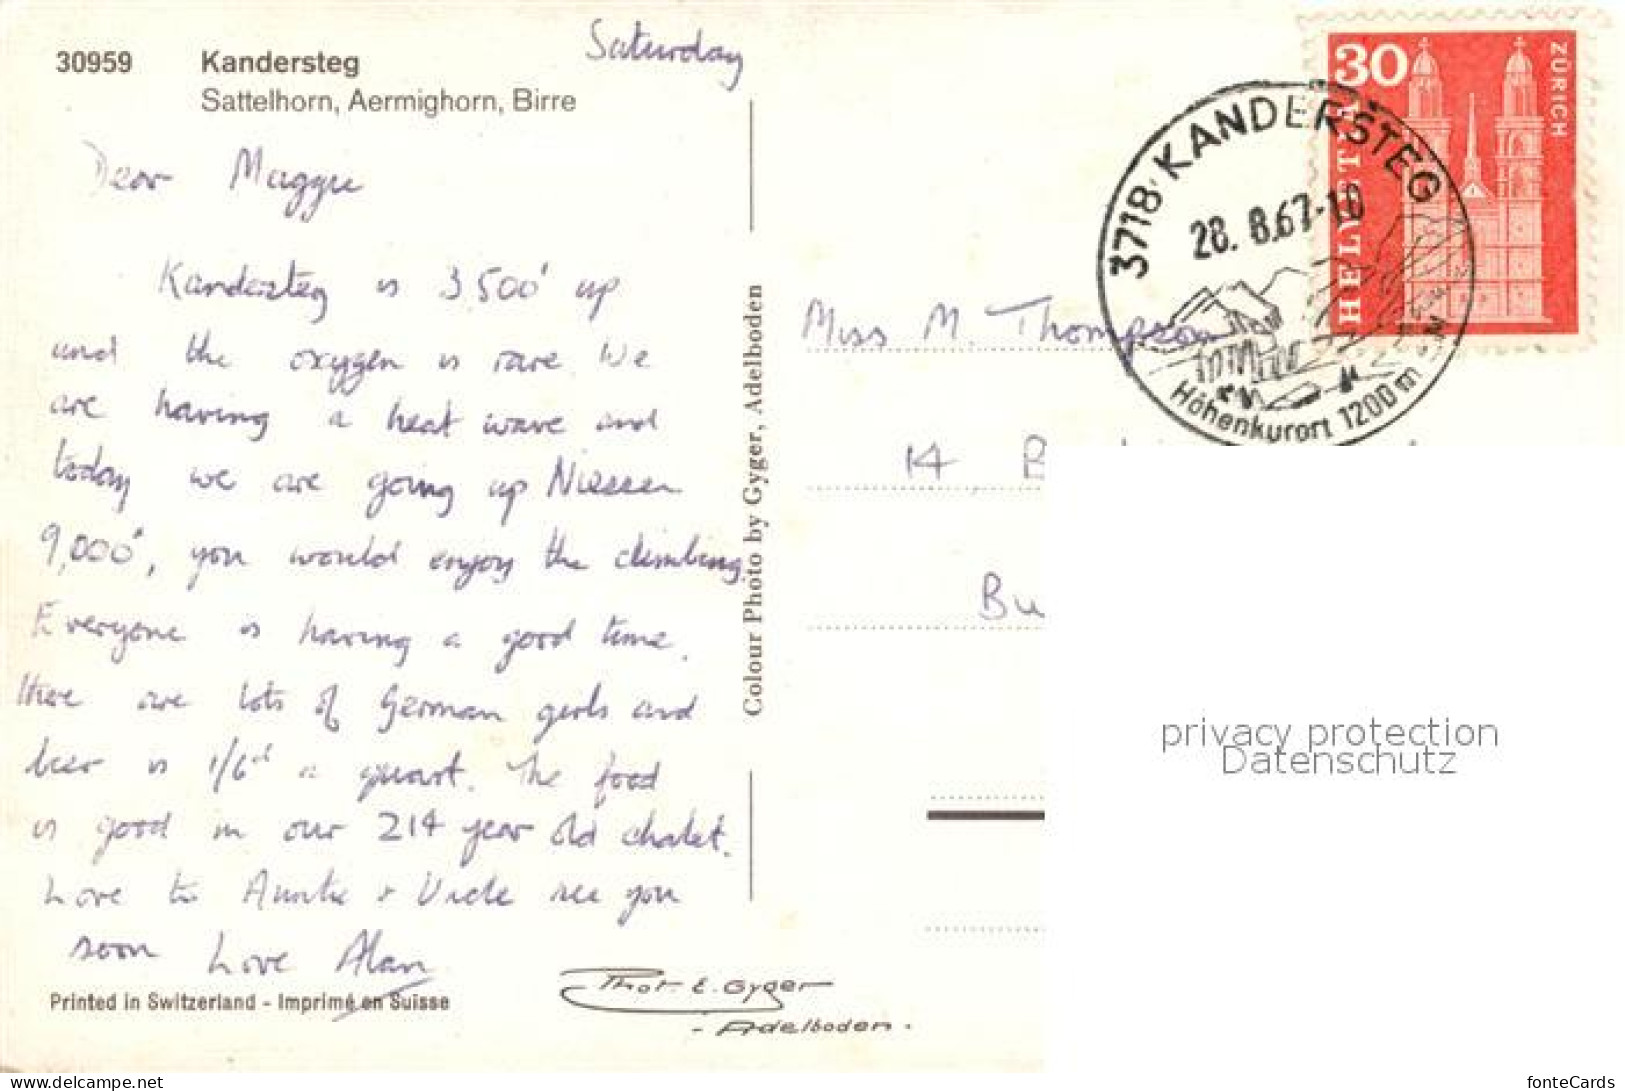 30959 Kandersteg
Sattelhorn, Aermighorn, Birre
Saturday
Dear Maggie
Kandersteg is 3500' up
and the oxygen is rare. We
are having a heat wave and
today we are going up Niessen
9,000', you would enjoy the climbing.
Everyone is having a good time.
there are lots of German girls and
beer is 1/6d a quart. The food
is good in our 214 year old chalet.
Love to Auntie + Uncle see you
soon Love Alan
Printed in Switzerland - Imprimé en Suisse
Colour Photo by Gyger, Adelboden
Phot. E. Gyger
- Adelboden -
30
HELVETIA
ZÜRICH
3718 KANDERSTEG
28. 8.67-18
Höhenkurort 1200 m
Miss M. Thompson
14, B
Bu
privacy protection
Datenschutz
www.delcampe.net
fonteCards